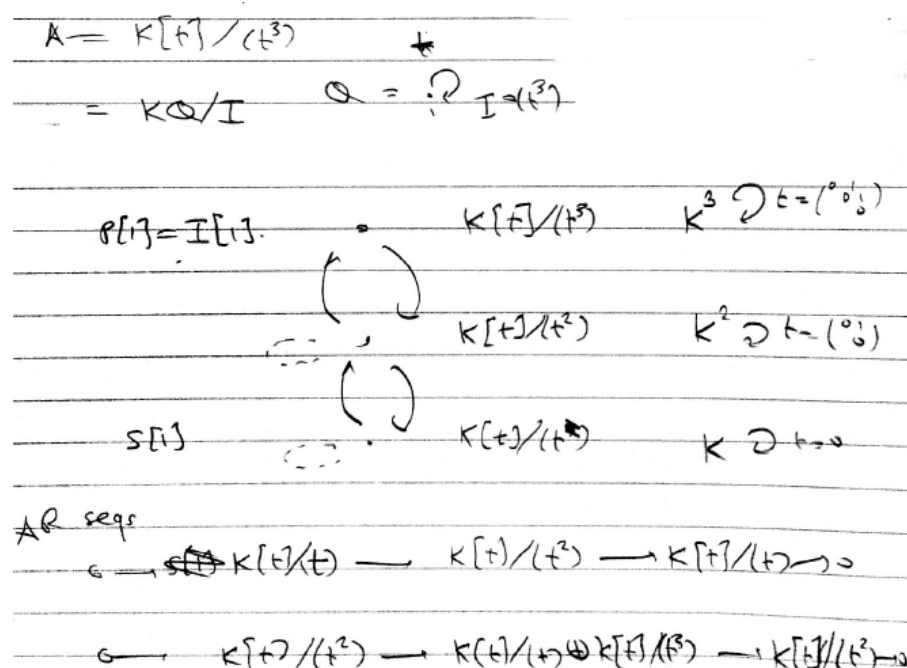 A = K[t]/(t³)
= KQ/I Q = I=(t³)
P[1]=I[1]. K[t]/(t³) K³ t=(⁰ ⁰¹ ₀¹)
K[t]/(t²) K² t=(⁰ ¹₀)
S[1] K[t]/(t) K t=0
AR seqs
0 — K[t]/(t) — K[t]/(t²) → K[t]/(t) → 0
0 — K[t]/(t²) — K[t]/(t) ⊕ K[t]/(t³) → K[t]/(t²) → 0